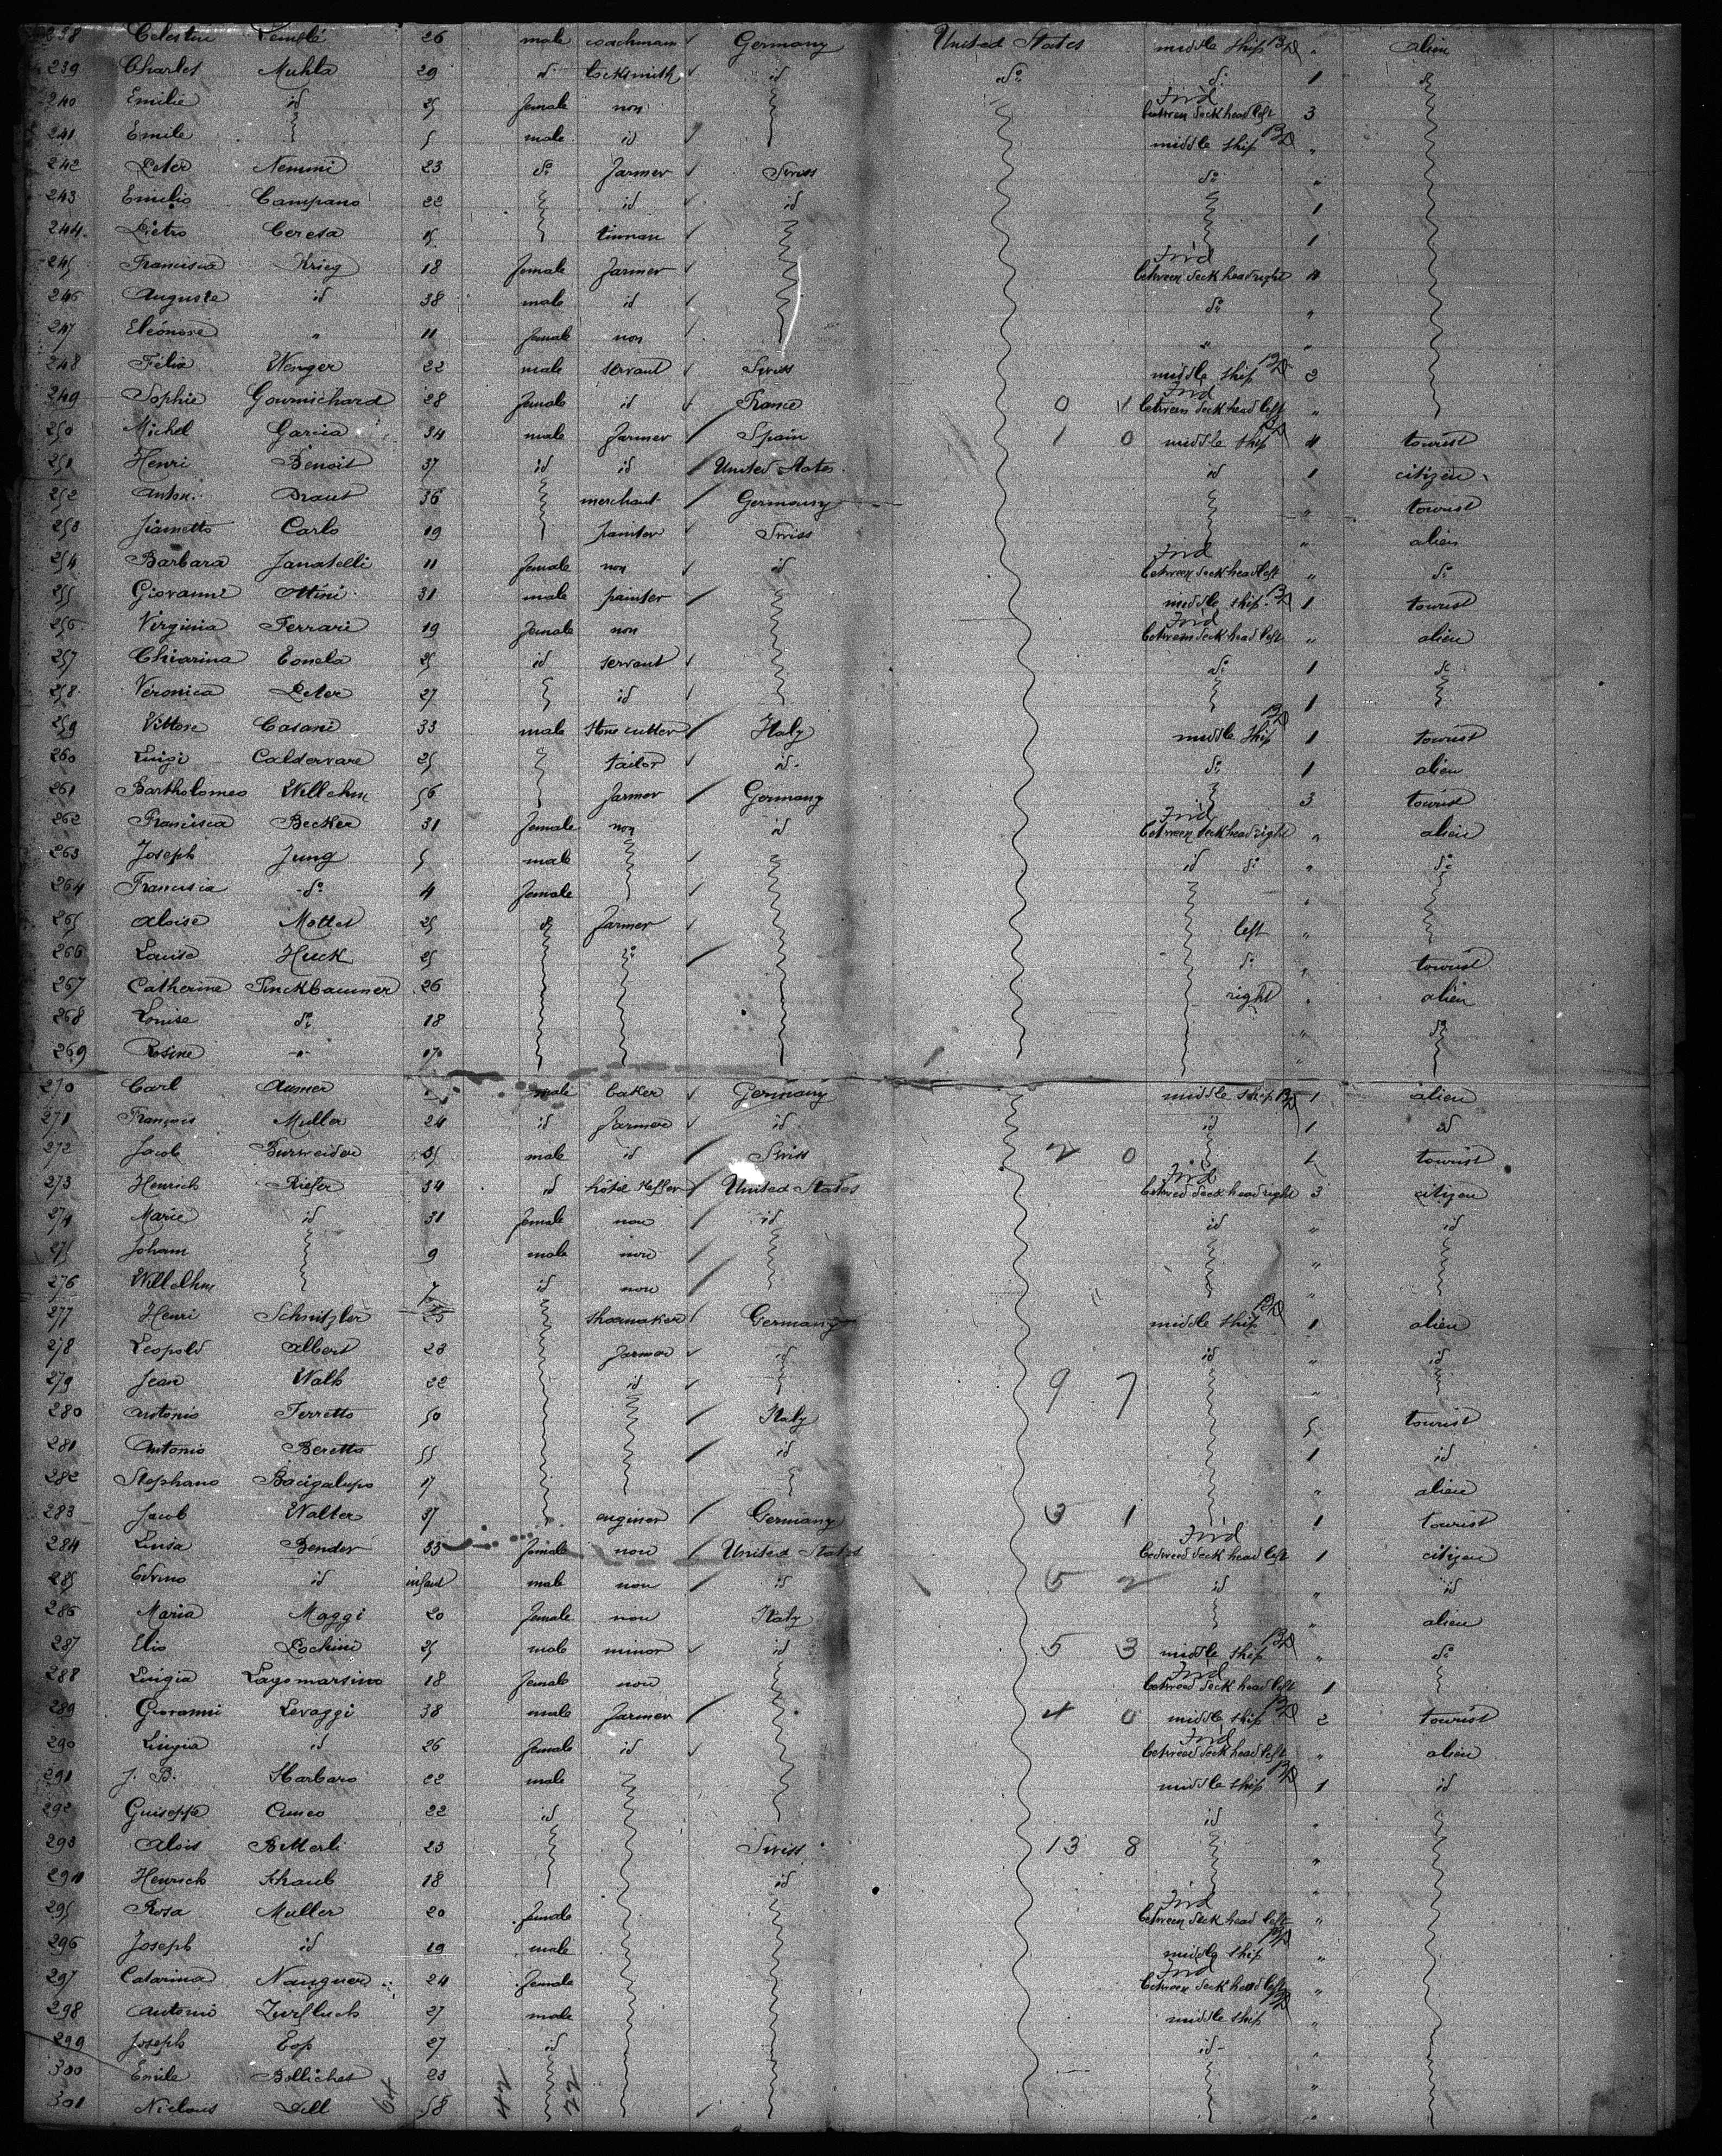 238 Celestin Lemblé 26 male coachmann Germany United States middle ship BD " alien
239 Charles Muhla 29 id locksmith id do do 1 do
240 Emilie id 25 female non Fwd between deck head left 3
241 Emile 5 male id middle ship BD "
242 Peter Nemmi 23 do farmer Swiss do "
243 Emilio Campano 22 id id 1
244 Pietro Ceresa 15 tinman 1
245 Francisca Krieg 18 female farmer Fwd between deck head right 4
246 Auguste id 38 male id do "
247 Eléonore " 11 female non " "
248 Félix Wenger 22 male servant Swiss middle ship BD 2
249 Sophie Gournichard 28 female id France 0 1 Fwd between deck head left "
250 Michel Garcia 34 male farmer Spain 1 0 middle ship BD 4 tourist
251 Henri Benoit 37 id id United States id 1 citizen
252 Anton Draut 36 merchant Germany " tourist
253 Jiametto Carlo 19 painter Swiss " alien
254 Barbara Janatelli 11 female non id Fwd between deck head left " do
255 Giovanni Ottini 31 male painter middle ship BD 1 tourist
256 Virginia Ferrari 19 female non Fwd between deck head left " alien
257 Chiarina Tonela 25 id servant do 1 do
258 Véronica Peter 27 id 1
259 Vittore Casani 33 male stone cutter Italy middle ship BD 1 tourist
260 Luigi Caldervare 25 tailor id do 1 alien
261 Bartholomeo Willehm 56 farmer Germany 3 tourist
262 Francisca Becker 31 female non id Fwd between deck head right " alien
263 Joseph Jung 5 male id do " do
264 Francisca do 4 female "
265 Aloise Mottet 25 do farmer left "
266 Louise Huck 25 do do " tourist
267 Catherine Finckbauner 26 right " alien
268 Louise do 18 " do
269 Rosine " "
270 Carl Aumer male baker Germany middle ship BD 1 alien
271 François Muller 24 id farmer id id 1 id
272 Jacob 35 male id Swiss 2 0 1 tourist
273 Henrich Kiefer 34 id hôtel Keffer United States Fwd between deck head right 3 citizen
274 Marie id 31 female non id id " id
275 Joham 9 male non "
276 Willelhm 7 id non "
277 Henri Schnitzler 25 shoemaker Germany middle ship BD 1 alien
278 Leopold Albert 28 farmer id id " id
279 Jean Walk 22 id 9 7 "
280 Antonio Ferretto 50 Italy 5 tourist
281 Antonio Beretta 55 id 1 id
282 Stephano Bacigalupo 17 " alien
283 Jacob Walter 37 enginer Germany 3 1 1 tourist
284 Luisa Bender 33 female non United States Fwd between deck head left 1 citizen
285 Edvino id infant male non id 5 2 id " id
286 Maria Maggi 20 female non Italy " alien
287 Elio Pochini 25 male minor id 5 3 middle ship BD " do
288 Luigia Lagomarsino 18 female non Fwd between deck head left 1
289 Giovanni Levaggi 38 male farmer 4 0 middle ship BD 2 tourist
290 Luigia id 26 female id Fwd between deck head left " alien
291 J. B. Sbarbaro 22 male middle ship BD 1 id
292 Guiseppe Cuneo 22 id id "
293 Alois Bitterli 23 Swiss 13 8 "
294 Henrich Schaub 18 id "
295 Rosa Muller 20 female Fwd between deck head left "
296 Joseph id 19 male middle ship BD "
297 Catarina 24 female Fwd between deck head left "
298 Antoni Zurfluch 27 male middle ship BD "
299 Joseph Eop 27 id id "
300 Emile Bollichet 23 "
301 Niclaus Dill 58 "